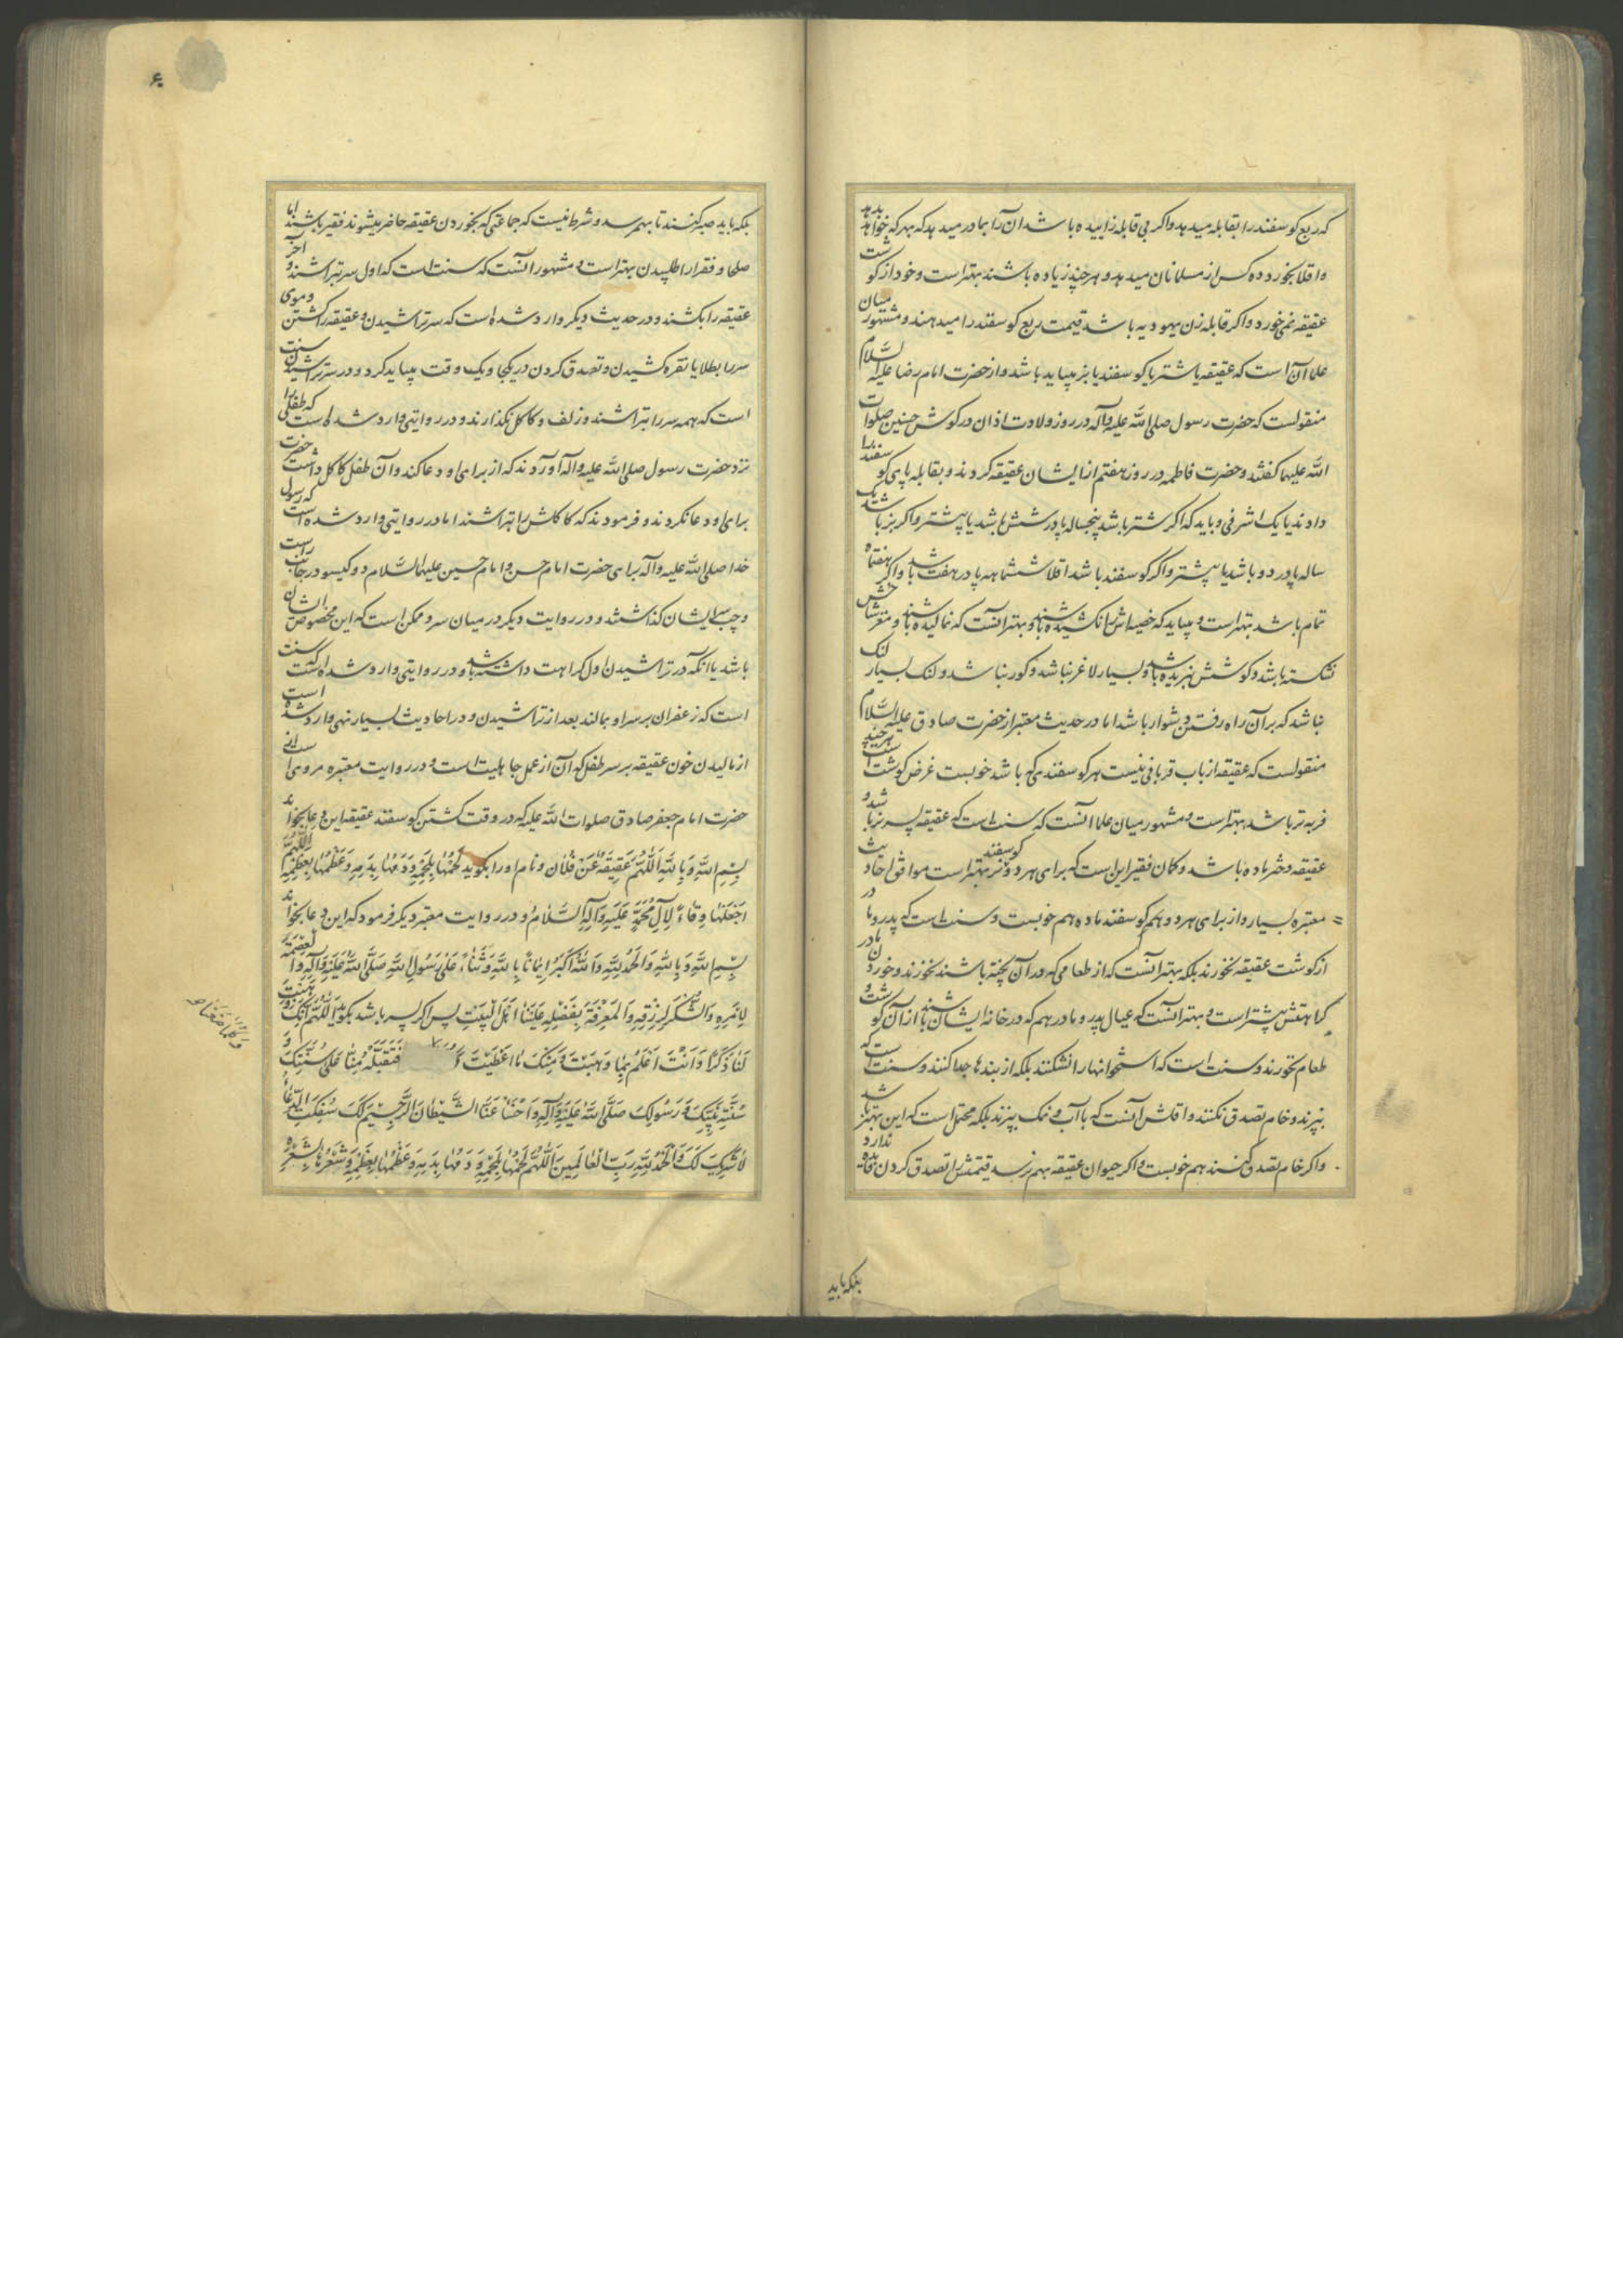 که ربع کوسفند را بقابله میدهد واکر بی قابله زاییده باشد ان را بمادر میدهد که بهر که خواهد بدهد
واقلا بخورد ده کس از مسلمانان میدهد و هر چند زیاده باشند بهتر است وخود از کوشت
عقیقه نمی خورد واکر قابله زن یهودیه باشد قیمت ربع کوسفند را میدهند و مشهور میان
علما آن است که عقیقه یا شتر یا کوسفند یا بز میباید باشد واز حضرت امام رضا علیه السلام
منقولست که حضرت رسول صلی الله علیه وآله در روز ولادت اذان در کوش حسنین صلوات
الله علیهما کفتند وحضرت فاطمه در روز هفتم از ایشان عقیقه کردند و بقابله پای کوسفند را
دادند با یک اشرفی و باید که اکر شتر باشد پنجساله یا در شش باشد یا پیشتر واکر بز باشد یک
ساله یا در دو باشد یا پیشتر واکر کوسفند باشد اقلا ششماهه یا در هفت باشد واکر هفتماه
تمام باشد بهتر است و میباید که خصیه اش را نکشیده باشند و بهتر آنست که نمالیده باشند و مغز شاخش
نشکسته باشد و کوشش نبریده باشد و بسیار لاغر نباشد و کور نباشد و لنک بسیار لنک
نباشد که بر آن راه رفتن دشوار باشد اما در حدیث معتبر از حضرت صادق علیه السلام
منقولست که عقیقه از باب قربانی نیست هر کوسفندی که باشد خوبست غرض کوشت است هر چند
فربه تر باشد بهتر است و مشهور میان علما آنست که سنت است که عقیقه پسر نر باشد و
عقیقه دختر ماده باشد و کمان فقیر این است که برای هر دو کوسفند نر بهتر است موافق احادیث
معتبره بسیار واز برای هر دو هم کوسفند ماده هم خوبست و سنت است که پدر و مادر
از کوشت عقیقه نخورند بلکه بهتر آنست که از طعامی که در آن پخته باشند نخورند و خوردن مادر
کراهتش بیشتر است و بهتر آنست که عیال پدر و مادر هم که در خانه ایشان باشند از آن کوشت و
طعام نخورند و سنت است که استخوانها را نشکنند بلکه از بندها جدا کنند و سنت است که
بپزند و خام تصدق نکنند و اقلش آنست که با آب و نمک بپزند بلکه محتمل است که این بهتر باشد
واکر خام تصدق کنند هم خوبست واکر حیوان عقیقه بهم نرسد قیمتش را تصدق کردن فایده ندارد
بلکه باید
بلکه باید صبر کنند تا بهم رسد و شرط نیست که جماعتی که بخوردن عقیقه حاضر میشوند فقیر باشند اما
صلحا و فقرا را طلبیدن بهتر است و مشهور آنست که سنت است که اول سر تراشند و آخر
عقیقه را بکشند و در حدیث دیکر وارد شده است که سر تراشیدن و عقیقه را کشتن و موی
سر را بطلا یا نقره کشیدن و تصدق کردن در یکجا و یک وقت میباید کرد و در سر تراشیدن سنت
است که همه سر را بتراشند و زلف و کاکل نکذارند و در روایتی وارد شده است که طفلی را
نزد حضرت رسول صلی الله علیه وآله آوردند که از برای او دعا کند و آن طفل کاکل داشت حضرت
برای او دعا نکردند و فرمودند که کاکلش را بتراشند اما در روایتی وارد شده است که رسول
خدا صلی الله علیه وآله برای حضرت امام حسن و امام حسین علیهما السلام دو کیسو در جانب راست
و چپ سر ایشان کذاشتند و در روایت دیکر در میان سر و ممکن است که این مخصوص ایشان
باشد یا آنکه در تراشیدن اول کراهت داشته باشد و در روایتی وارد شده است که سنت
است که زعفران بر سر او بمالند بعد از تراشیدن و در احادیث بسیار نهی وارد شده است
از مالیدن خون عقیقه بر سر طفل که آن از عمل جاهلیت است و در روایت معتبره مرویست از
حضرت امام جعفر صادق صلوات الله علیه که در وقت کشتن کوسفند عقیقه این دعا بخواند
بِسْمِ اللهِ وَبِاللهِ اَللّهُمَّ عَقِیقَةٌ عَنْ فُلانٍ ونام او را بکوید لَحْمُها بِلَحْمِهِ وَدَمُها بِدَمِهِ وَعَظْمُها بِعَظْمِهِ اَللّهُمَّ
اجْعَلْها وِقاءً لِآلِ مُحَمَّدٍ عَلَیْهِ وَآلِهِ السَّلامُ و در روایت معتبر دیکر فرمود که این دعا بخواند
بِسْمِ اللهِ وَبِاللهِ وَالْحَمْدُ لِلّهِ وَاللهُ اَکْبَرُ اِیمانًا بِاللهِ وَثَناءً عَلی رَسُولِ اللهِ صَلَّی اللهُ عَلَیْهِ وَآلِهِ وَالْعِصْمَةُ
لِاَمْرِهِ وَالشُّکْرُ لِرِزْقِهِ وَالْمَعْرِفَةُ بِفَضْلِهِ عَلَیْنا اَهْلَ الْبَیْتِ پس اکر پسر باشد بکوید اَللّهُمَّ اِنَّکَ وَهَبْتَ
لَنا ذَکَرًا وَاَنْتَ اَعْلَمُ بِما وَهَبْتَ وَمِنْکَ ما اَعْطَیْتَ فَتَقَبَّلْهُ مِنّا عَلی سُنَّتِکَ وَ
وَکُلَّما صَنَعْنا
سُنَّةِ نَبِیِّکَ وَرَسُولِکَ صَلَّی اللهُ عَلَیْهِ وَآلِهِ وَاخْسَأْ عَنَّا الشَّیْطانَ الرَّجِیمَ لَکَ سُفِکَتِ الدِّماءُ
لا شَرِیکَ لَکَ وَالْحَمْدُ لِلّهِ رَبِّ الْعالَمِینَ اَللّهُمَّ لَحْمُها بِلَحْمِهِ وَدَمُها بِدَمِهِ وَعَظْمُها بِعَظْمِهِ وَشَعْرُها بِشَعْرِهِ